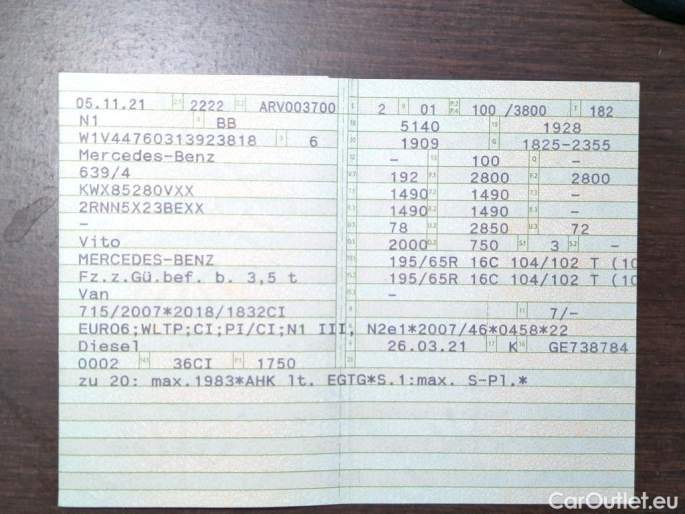 05.11.21 2222 ARV003700 2 01 100 /3800 182
N1 BB 5140 1928
W1V44760313923818 6 1909 1825-2355
Mercedes-Benz - 100 -
639/4 192 2800 2800
KWX85280VXX 1490 1490 -
2RNN5X23BEXX 1490 1490 -
- 78 2850 72
Vito 2000 750 3 -
MERCEDES-BENZ 195/65R 16C 104/102 T (10
Fz.z.Gü.bef. b. 3,5 t 195/65R 16C 104/102 T (10
Van -
715/2007*2018/1832CI 7/-
EURO6;WLTP;CI;PI/CI;N1 III, N2e1*2007/46*0458*22
Diesel 26.03.21 K GE738784
0002 36CI 1750
zu 20: max.1983*AHK lt. EGTG*S.1:max. S-Pl.*
CarOutlet.eu